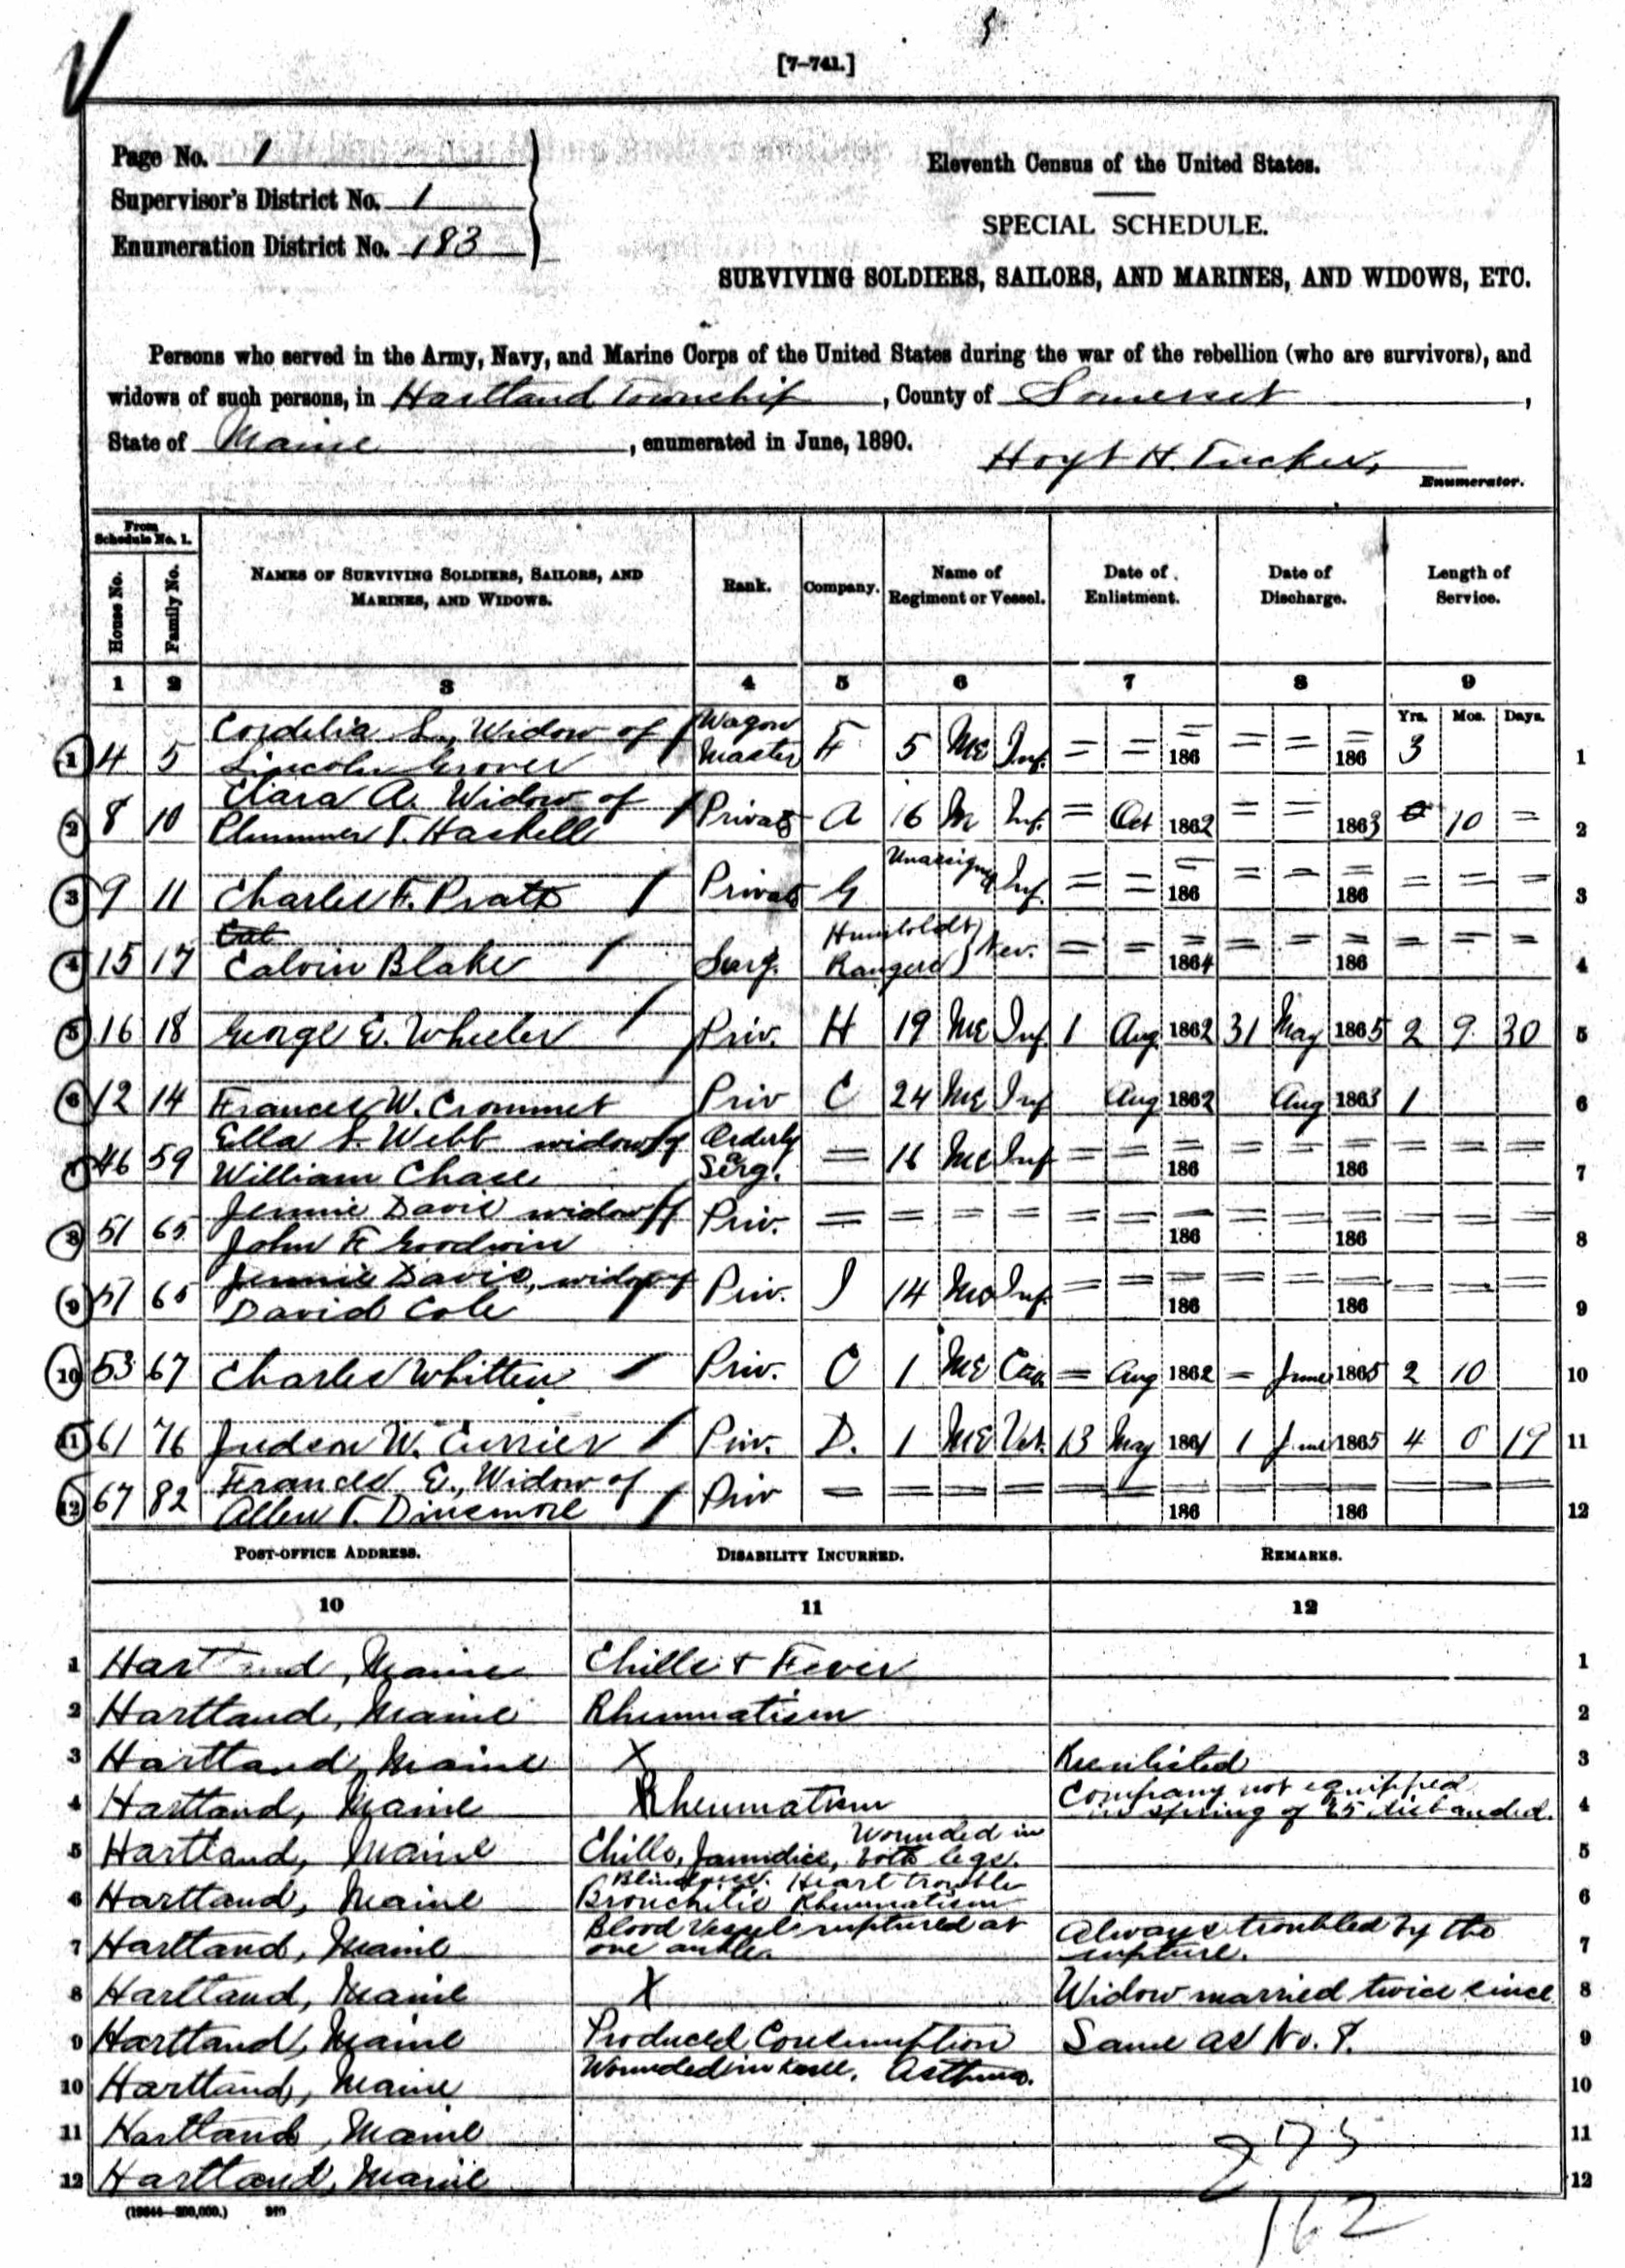 [7-741.]
Page No. 1
Supervisor's District No. 1
Enumeration District No. 183
Eleventh Census of the United States.
SPECIAL SCHEDULE.
SURVIVING SOLDIERS, SAILORS, AND MARINES, AND WIDOWS, ETC.
Persons who served in the Army, Navy, and Marine Corps of the United States during the war of the rebellion (who are survivors), and
widows of such persons, in Hartland Township, County of Somerset,
State of Maine, enumerated in June, 1890.
Hoyt H. Tucker,
Enumerator.
From Schedule No. 1.
House No. Family No. NAMES OF SURVIVING SOLDIERS, SAILORS, AND MARINES, AND WIDOWS. Rank. Company. Name of Regiment or Vessel. Date of Enlistment. Date of Discharge. Length of Service.
1 2 3 4 5 6 7 8 9
Yrs. Mos. Days.
1 4 5 Cordelia S., Widow of Lincoln Grover Wagon Master F 5 ME Inf. = = = 186 = = = 186 3 1
2 8 10 Clara A. Widow of Plummer T. Haskell Private A 16 M Inf. = Oct 1862 = = 1863 10 = 2
3 9 11 Charles F. Pratt Private G Unassigned Inf. = = = 186 = = = 186 = = = 3
4 15 17 Cal Calvin Blake Serg. Humboldt Rangers Nev. = = = 1864 = = = 186 = = = 4
5 16 18 George E. Wheeler Priv. H 19 ME Inf 1 Aug 1862 31 May 1865 2 9 30 5
6 12 14 Frances W. Crommet Priv C 24 ME Inf Aug 1862 Aug 1863 1 6
7 46 59 Ella S. Webb widow of William Chase Orderly Serg. = 16 ME Inf = = = 186 = = = 186 = = = 7
8 51 65 Jennie Davis widow of John F Goodwin Priv. = = = = = = = 186 = = = 186 = = = 8
9 51 65 Jennie Davis, widow of David Cole Priv. I 14 Me Inf. = = = 186 = = = 186 = = = 9
10 53 67 Charles Whitten Priv. C 1 ME Cav. = Aug 1862 = June 1865 2 10 10
11 61 76 Judson W. Currier Priv. D. 1 ME Vet. 13 May 1861 1 June 1865 4 0 19 11
12 67 82 Frances E., Widow of Allen T. Dinsmore Priv = = = = = = = 186 = = = 186 = = = 12
POST-OFFICE ADDRESS. DISABILITY INCURRED. REMARKS.
10 11 12
1 Hartland, Maine Chills + Fever 1
2 Hartland, Maine Rheumatism 2
3 Hartland, Maine X Reenlisted 3
4 Hartland, Maine Rheumatism Company not equipped in spring of 65 disbanded. 4
5 Hartland, Maine Chills, Jaundice, Wounded in both legs. 5
6 Hartland, Maine Blindness. Heart trouble Bronchitis Rheumatism 6
7 Hartland, Maine Blood Vessels ruptured at one ankle. Always troubled by the rupture. 7
8 Hartland, Maine X Widow married twice since 8
9 Hartland, Maine Produced Consumption Same as No. 8. 9
10 Hartland, Maine Wounded in knee. Asthma. 10
11 Hartland, Maine 11
12 Hartland, Maine 12
162